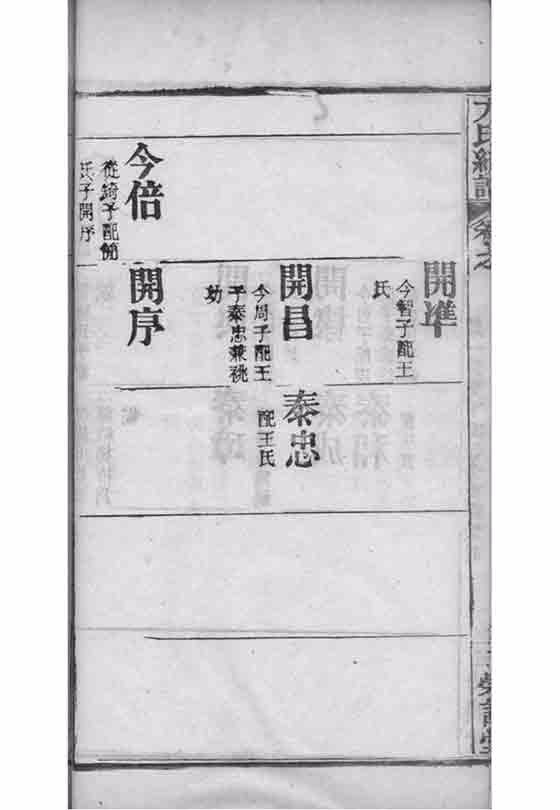 方氏統譜
卷之
開準
今智子配王
氏
開昌
今周子配王
子泰忠兼祧
幼
泰忠
配王氏
今倍
從錡子配鮑
氏子開序
開序